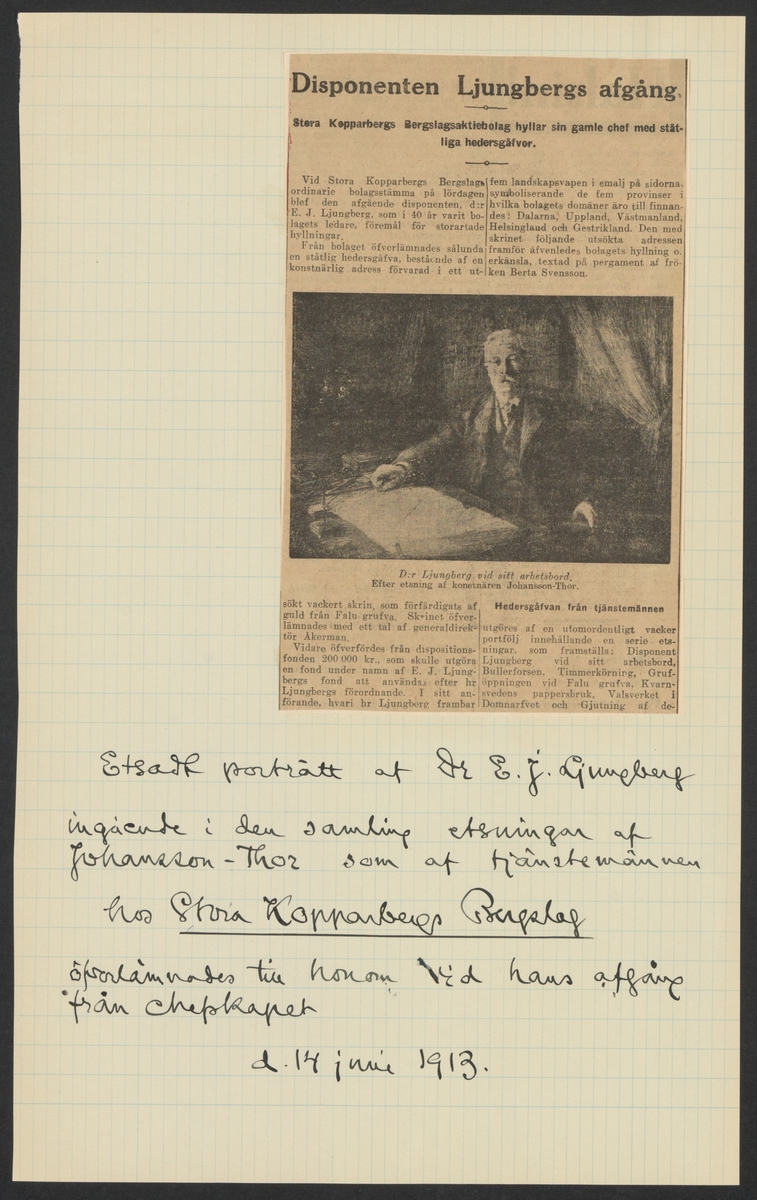 Disponenten Ljungbergs afgång.
Stora Kopparbergs Bergslagsaktiebolag hyllar sin gamle chef med ståt-
liga hedersgåfvor.
Vid Stora Kopparbergs Bergslags
ordinarie bolagsstämma på lördagen
blef den afgående disponenten, d:r
E. J. Ljungberg, som i 40 år varit bo-
lagets ledare, föremål för storartade
hyllningar.
Från bolaget öfverlämnades sålunda
en ståtlig hedersgåfva, bestående af en
konstnärlig adress förvarad i ett ut-
fem landskapsvapen i emalj på sidorna,
symboliserande de fem provinser i
hvilka bolagets domäner äro till finnan-
des: Dalarna, Uppland, Västmanland,
Helsingland och Gestrikland. Den med
skrinet följande utsökta adressen
framför äfvenledes bolagets hyllning o.
erkänsla, textad på pergament af frö-
ken Berta Svensson.
D:r Ljungberg vid sitt arbetsbord.
Efter etsning af konstnären Johansson-Thor.
sökt vackert skrin, som förfärdigats af
guld från Falu grufva. Skrinet öfver-
lämnades med ett tal af generaldirek-
tör Åkerman.
Vidare öfverfördes från dispositions-
fonden 200 000 kr., som skulle utgöra
en fond under namn af E. J. Ljung-
bergs fond att användas efter hr
Ljungbergs förordnande. I sitt an-
förande, hvari hr Ljungberg frambar
Hedersgåfvan från tjänstemännen
utgöres af en utomordentligt vacker
portfölj innehållande en serie ets-
ningar, som framställa: Disponent
Ljungberg vid sitt arbetsbord,
Bullerforsen, Timmerkörning, Gruf-
öppningen vid Falu grufva, Kvarn-
svedens pappersbruk, Valsverket i
Domnarfvet och Gjutning af de-
Etsadt porträtt af Dr E. J. Ljungberg
ingående i den samling etsningar af
Johansson-Thor som af tjänstemännen
hos Stora Kopparbergs Bergslag
öfverlämnades till honom vid hans afgång
från chefskapet
d. 14 juni 1913.